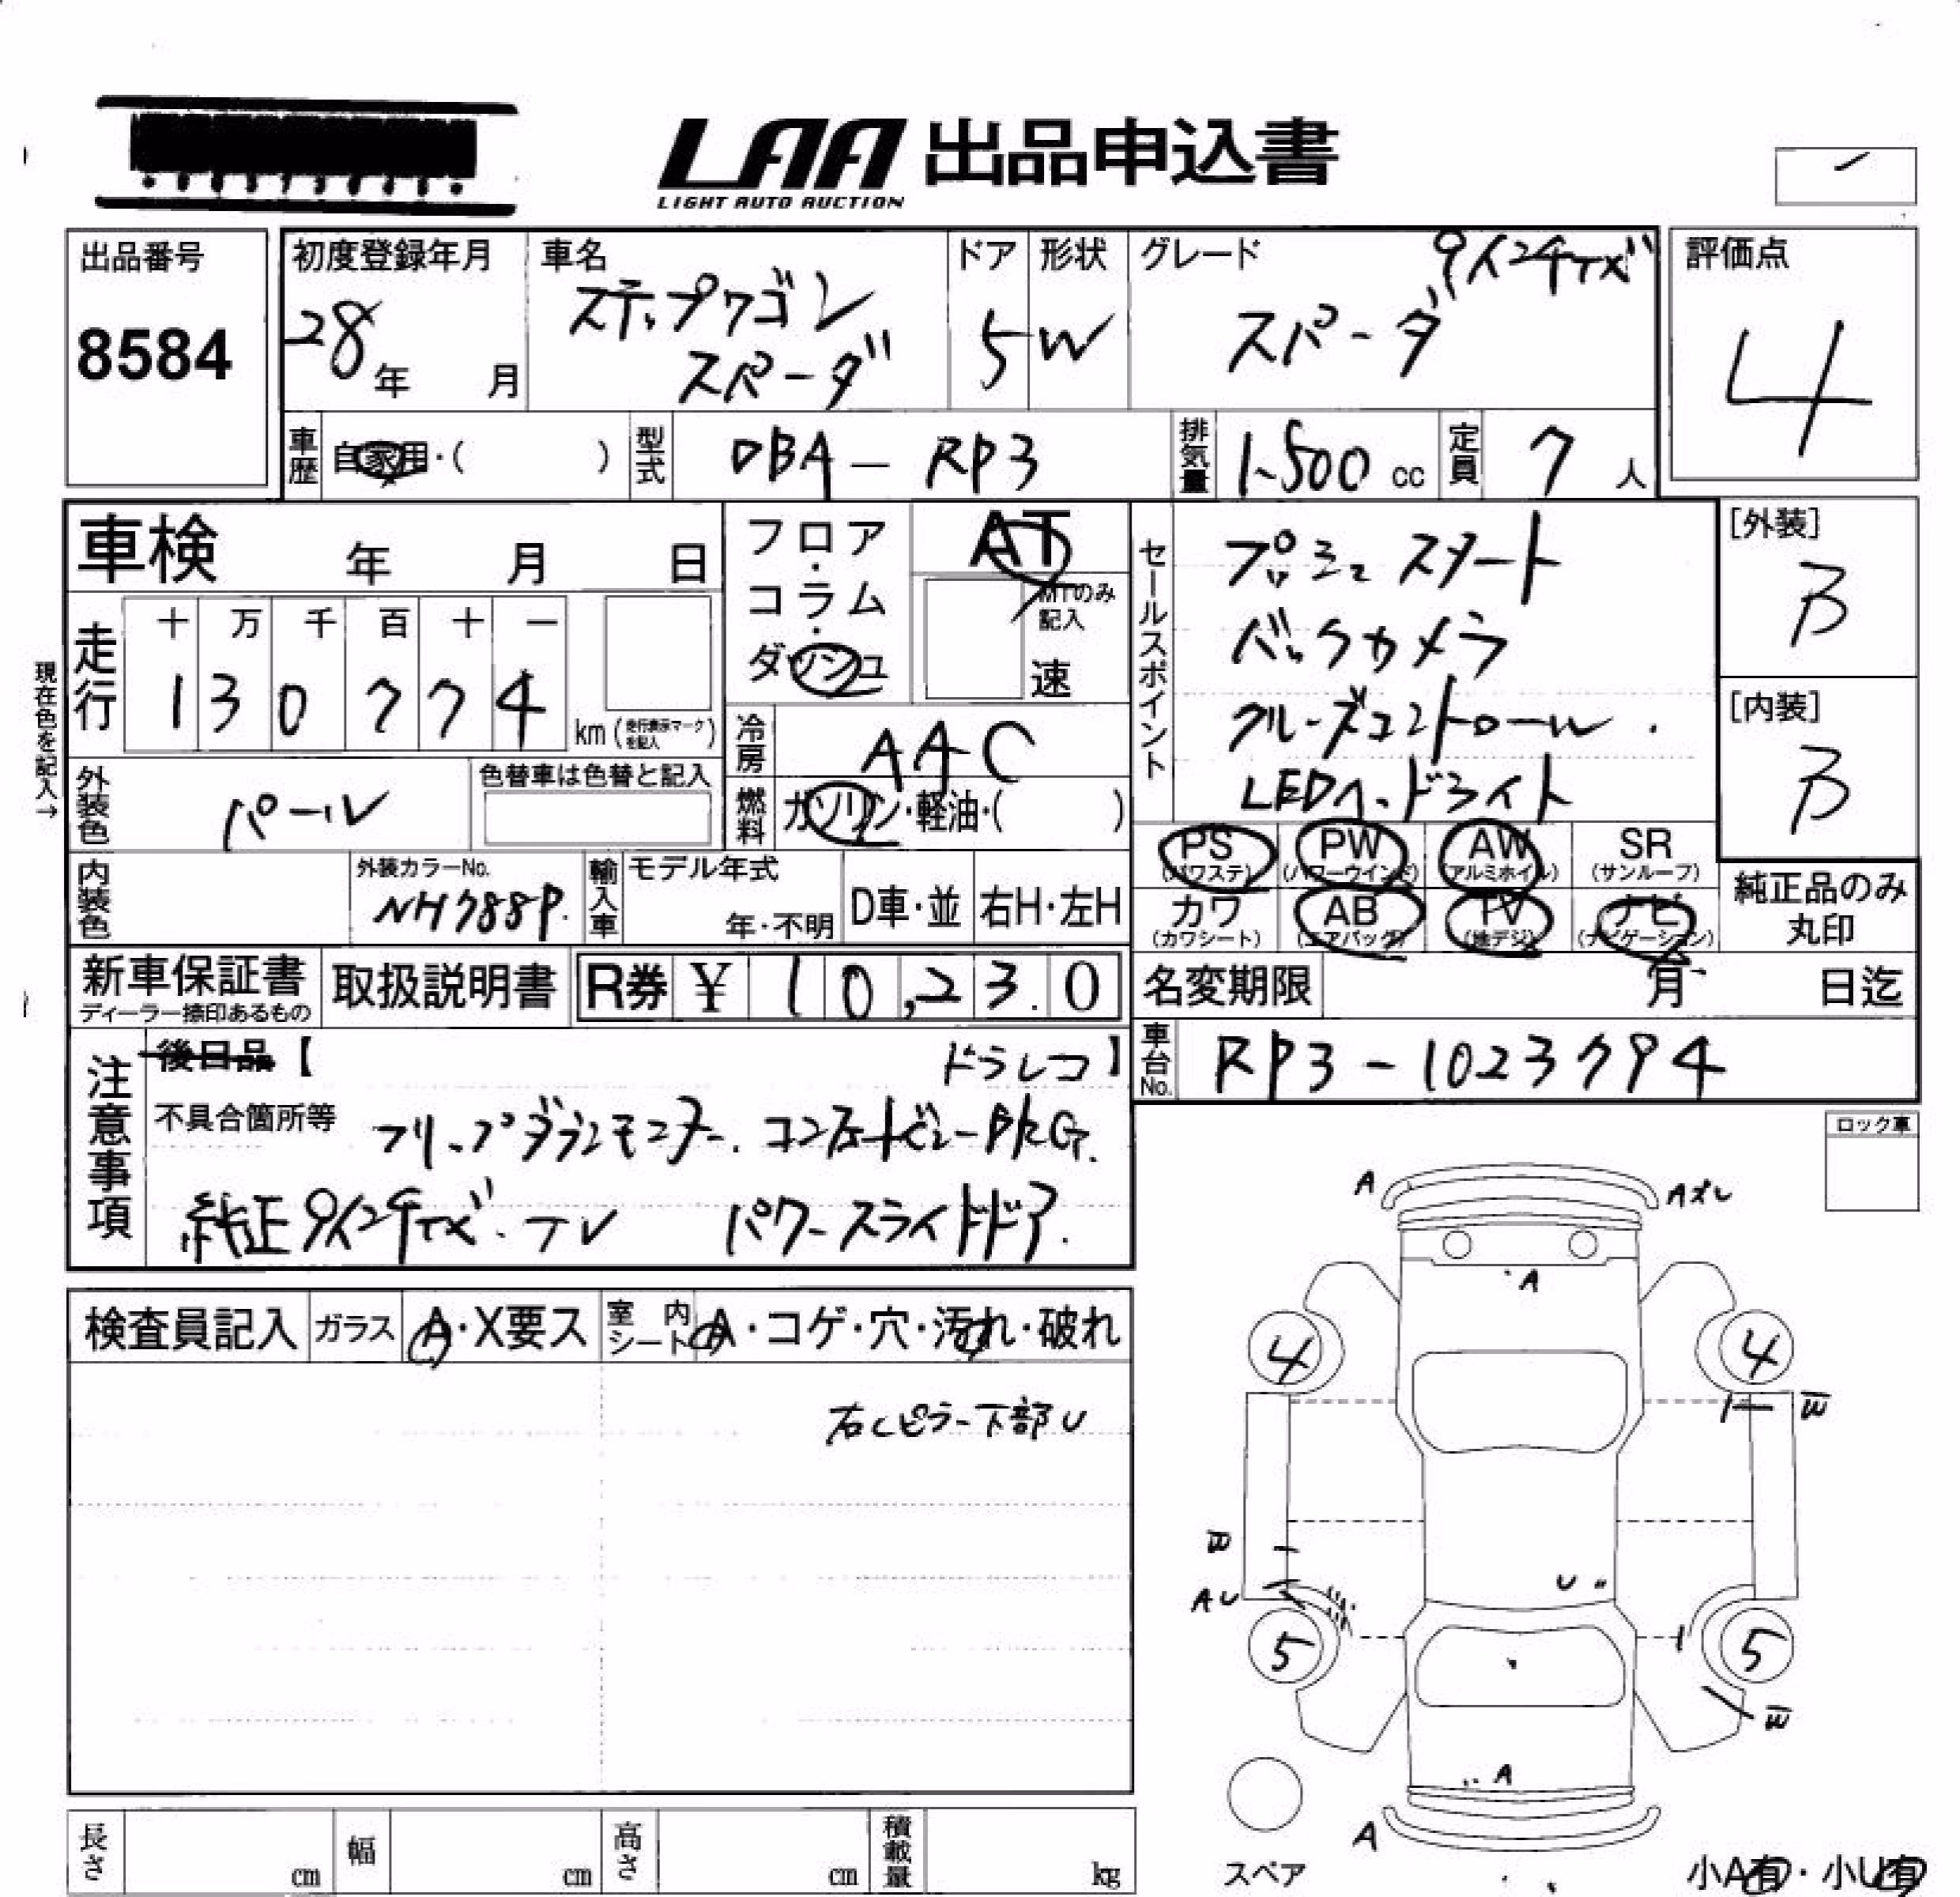 LAA 出品申込書
LIGHT AUTO AUCTION
出品番号
8584
初度登録年月
28年 月
車名
ステップワゴン
スパーダ
ドア
5
形状
W
グレード
9インチナビ
スパーダ
評価点
4
車歴 自家用・( )
型式 DBA-RP3
排気量 1,500 cc
定員 7 人
車検 年 月 日
フロア・コラム・ダッシュ
AT
MTのみ記入
速
セールスポイント
プッシュスタート
バックカメラ
クルーズコントロール.
LEDヘッドライト
[外装]
B
[内装]
B
現在色を記入→
走行
十 万 千 百 十 一
1 3 0 7 7 4
km (走行表示マークを記入)
冷房 AAC
燃料 ガソリン・軽油・( )
外装色 パール
色替車は色替と記入
内装色
外装カラーNo.
NH788P.
輸入車
モデル年式
年・不明
D車・並
右H・左H
PS (パワステ)
PW (パワーウインド)
AW (アルミホイル)
SR (サンルーフ)
カワ (カワシート)
AB (エアバッグ)
TV (地デジ)
ナビ (ナビゲーション)
純正品のみ
丸印
新車保証書
ディーラー捺印あるもの
取扱説明書
R券 ¥ 10,230
名変期限 月 日迄
車台No. RP3-1023794
注意事項
後日品【 ドラレコ】
不具合箇所等 フリップダウンモニター.
純正9インチナビ.TV パワースライドドア.
ロック車
検査員記入
ガラス A・X要ス
室内シート A・コゲ・穴・汚れ・破れ
右Cピラー下部U
A
A
4
4
W
W
AU
U
5
5
W
A
A
スペア
小A有・小U有
長さ cm
幅 cm
高さ cm
積載量 kg